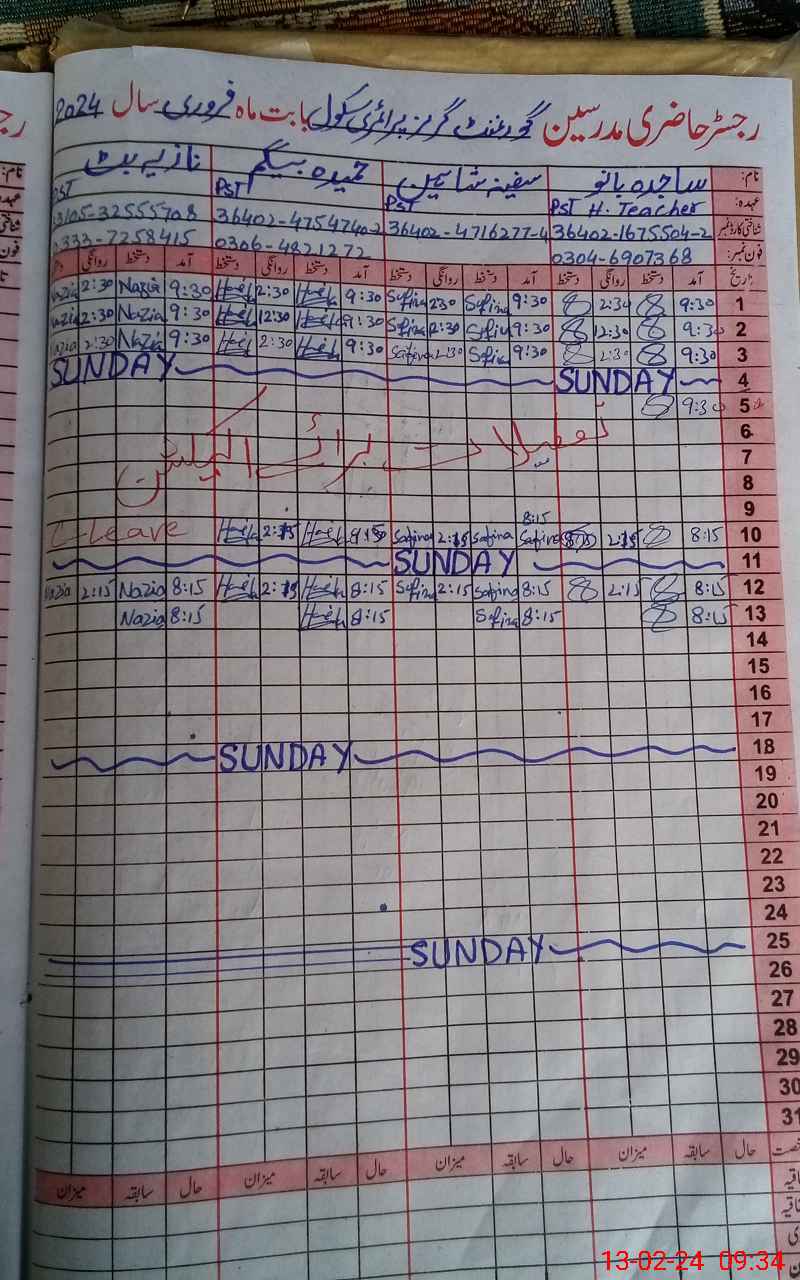 رجسٹر حاضری مدرسین گورنمنٹ گرلز پرائمری سکول بابت ماہ فروری سال 2024
نام: ساجدہ بانو سفینہ شاہین حمیدہ بیگم نازیہ بٹ
عہدہ: PST H. Teacher PST PST PST
شناختی کارڈ نمبر 36402-1675504-2 36402-4716277-4 36402-4754740-2
فون نمبر: 0304-6907368 0306-4821272 0333-7258415
تاریخ آمد دستخط روانگی دستخط آمد دستخط روانگی دستخط آمد دستخط روانگی دستخط آمد دستخط روانگی
1 9:30 2:30 9:30 Safina 2:30 Safina 9:30 2:30 9:30 Nazia 2:30 Nazia
2 9:30 12:30 9:30 Safina 12:30 Safina 9:30 12:30 9:30 Nazia 2:30 Nazia
3 9:30 2:30 9:30 Safina 2:30 Safina 9:30 2:30 9:30 Nazia 2:30 Nazia
4 SUNDAY SUNDAY
5 9:30
6
تعطیلات برائے الیکشن
7
8
9
8:15
10 8:15 2:15 Safina Safina 2:15 Safina 2:15 C-Leave
11 SUNDAY
12 8:15 2:15 8:15 Safina 2:15 Safina 8:15 2:15 8:15 Nazia 2:15 Nazia
13 8:15 8:15 Safina 8:15 8:15 Nazia
14
15
16
17
18 SUNDAY
19
20
21
22
23
24
25 SUNDAY
26
27
28
29
30
31
حال سابقہ میزان حال سابقہ میزان حال سابقہ میزان حال سابقہ میزان
13-02-24 09:34